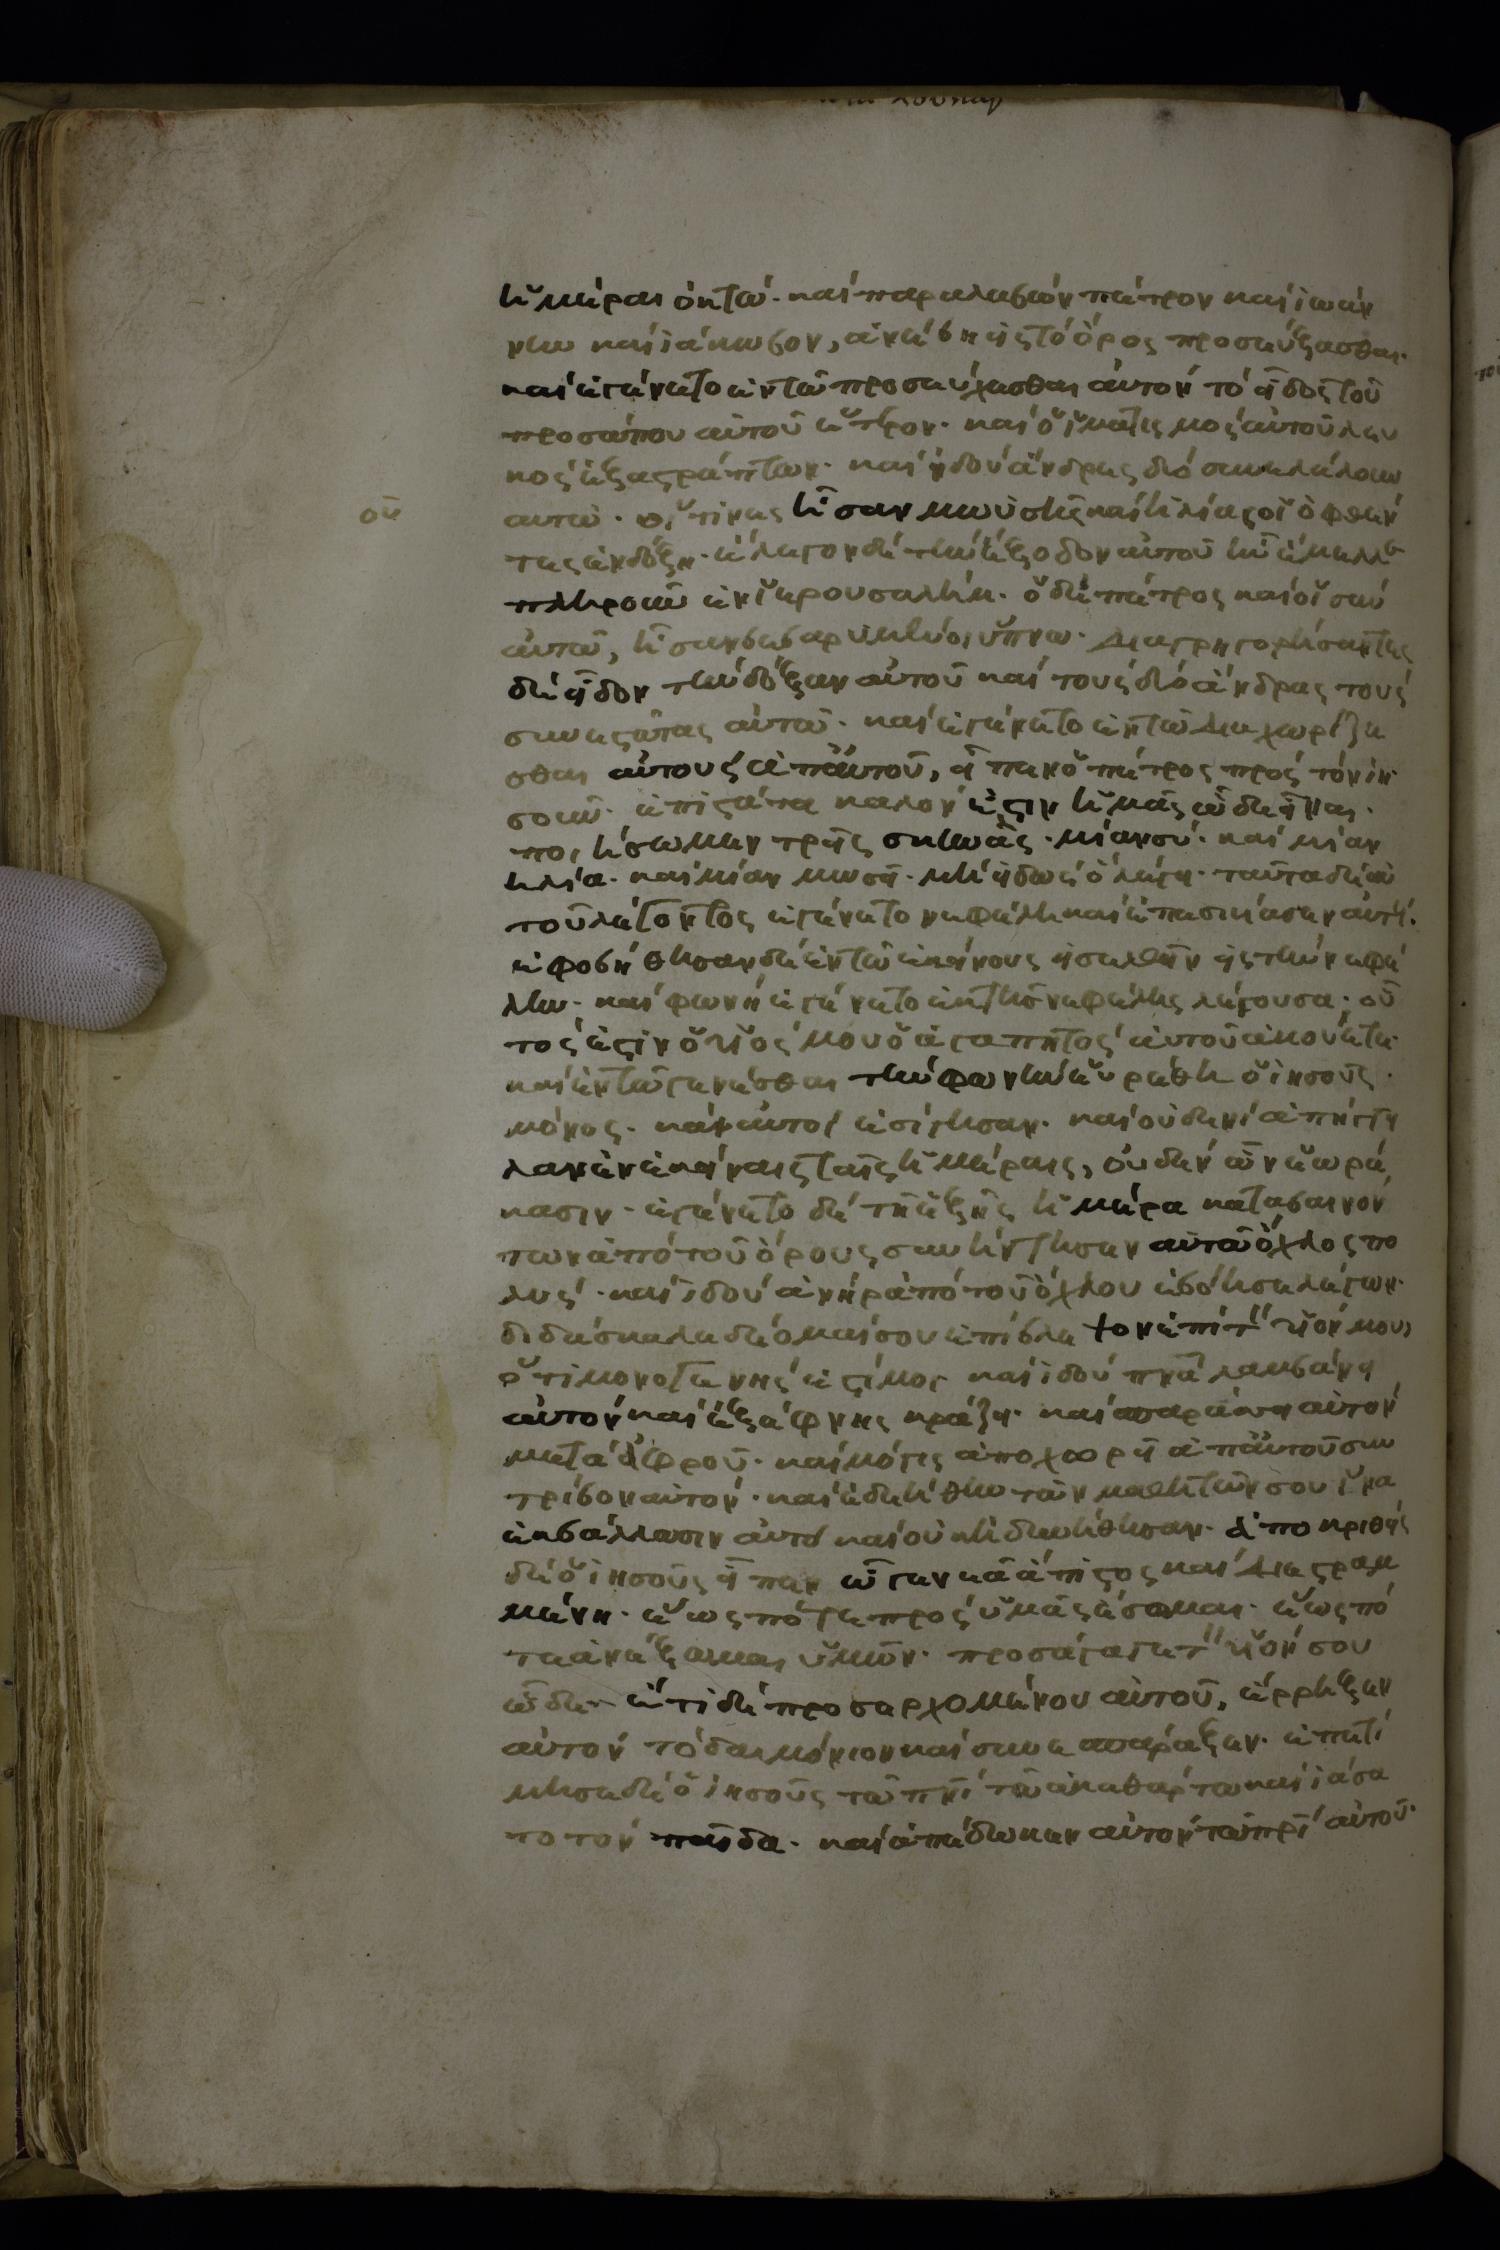 ἡμέραι ὀκτώ· καὶ παραλαβὼν πέτρον καὶ ἰωάν
νην καὶ ἰάκωβον, ἀνέβη εἰς τὸ ὄρος προσεύξασθαι·
καὶ ἐγένετο ἐν τῶ προσεύχεσθαι αὐτὸν τὸ εἶδος τοῦ
προσώπου αὐτοῦ ἕτερον· καὶ ὁ ἱματισμὸς αὐτοῦ λευ
κὸς ἐξαστράπτων· καὶ ἰδοὺ ἄνδρες δύο συνελάλουν
αυτῶ· οἵτινες ἦσαν μωϋσῆς καὶ ἠλίας οἳ ὀφθέν
τες ἐν δόξη· ἔλεγον δὲ τὴν ἔξοδον αὐτοῦ ἣν ἔμελλε
πληροῦν ἐν ἱερουσαλήμ· ὁ δὲ πέτρος καὶ οἱ σὺν
αὐτῶ, ἦσαν βεβαρημένοι ὕπνω· διαγρηγορήσαντες
δὲ εἶδον τὴν δόξαν αὐτοῦ καὶ τοὺς δύο ἄνδρας τοὺς
συνεστῶτας αὐτῶ· καὶ ἐγένετο ἐν τῶ διαχωρίζε
σθαι αὐτοὺς ἀπ' αὐτοῦ, εἶπεν ὁ πέτρος πρὸς τὸν ἰη
σοῦν· ἐπιστάτα καλόν ἐστιν ἡμᾶς ὧδε εἶναι·
ποιήσωμεν τρεῖς σκηνὰς· μίαν σύ· καὶ μίαν
ἠλία· καὶ μίαν μωσῆ· μὴ εἰδὼς ὃ λέγει· ταῦτα δὲ αὐ
τοῦ λέγοντος ἐγένετο νεφέλη καὶ ἐπεσκίασεν αὐτούς·
ἐφοβήθησαν δὲ ἐν τῶ ἐκείνους εἰσελθεῖν εἰς τὴν νεφέ
λην· καὶ φωνὴ ἐγένετο ἐκ τῆς νεφέλης λέγουσα· οὗ
τός ἐστιν ὁ υἱός μου ὁ ἀγαπητὸς αὐτοῦ ἀκούετε·
καὶ ἐν τῶ γενέσθαι τὴν φωνὴν εὑρέθη ὁ ἰησοῦς·
μόνος· καὶ αὐτοὶ ἐσίγησαν· καὶ οὐδενὶ ἀπήγγει
λαν ἐν ἐκείναις ταῖς ἡμέραις, οὐδὲν ὧν ἑωρά
κασιν· ἐγένετο δὲ τῆ ἑξῆς ἡμέρα κατεβαινόν
των ἀπὸ τοῦ ὄρους συνήντησεν αὐτῶ ὄχλος πο
λύς· καὶ ἰδοὺ ἀνὴρ ἀπὸ τοῦ ὄχλου ἐβόησε λέγων·
διδάσκαλε δέομαί σου ἐπίβλε ψον ἐπὶ τὸν υἱόν μου,
ὅτι μονογενής ἐστί μοι καὶ ἰδοὺ πνα λαμβάνει
αὐτὸν καὶ ἐξαίφνης κράζει· καὶ σπαράσσει αὐτὸν
μετὰ ἀφροῦ· καὶ μόγις ἀποχωρεῖ ἀπ' αὐτοῦ συν
τρίβον αὐτόν· καὶ ἐδεήθην τῶν μαθητῶν σου ἵνα
ἐκβάλλωσιν αὐτὸ καὶ οὐκ ἠδυνήθησαν· ἀποκριθεὶς
δὲ ὁ ἰησοῦς εἶπεν ὦ γενεὰ ἄπιστος καὶ διεστραμ
μένη· ἕως πότε πρὸς ὑμᾶς ἔσομαι· ἕως πό
τε ἀνέξομαι ὑμῶν· προσάγαγε τὸν υἱόν σου
ὧδε· ἔτι δὲ προσερχομένου αὐτοῦ, ἔρρηξεν
αὐτὸν τὸ δαιμόνιον καὶ συνεσπάραξεν· ἐπετί
μησε δὲ ὁ ἰησοῦς τῶ πνι τῶ ἀκαθάρτω καὶ ἰάσα
το τὸν παῖδα· καὶ ἀπέδωκεν αὐτὸν τῶ πρι αὐτοῦ·